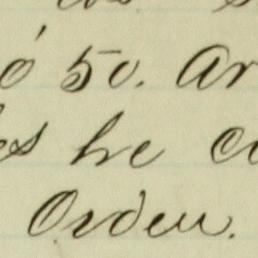 ó 50. Ar
es he co
Orden.